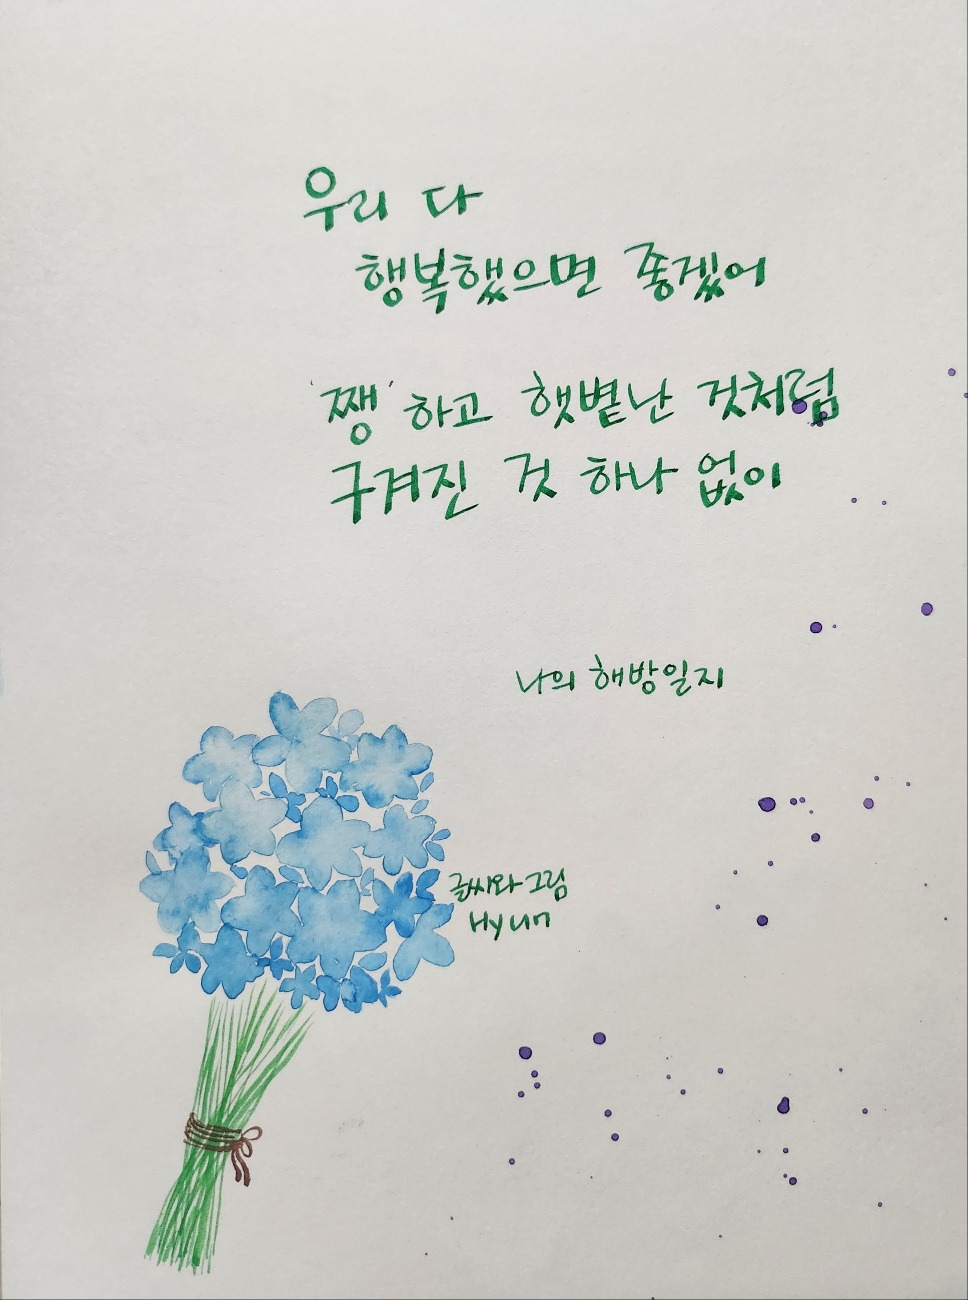 우리 다
행복했으면 좋겠어
'쨍'하고 햇볕난 것처럼
구겨진 것 하나 없이
나의 해방일지
글씨와 그림
Hyun